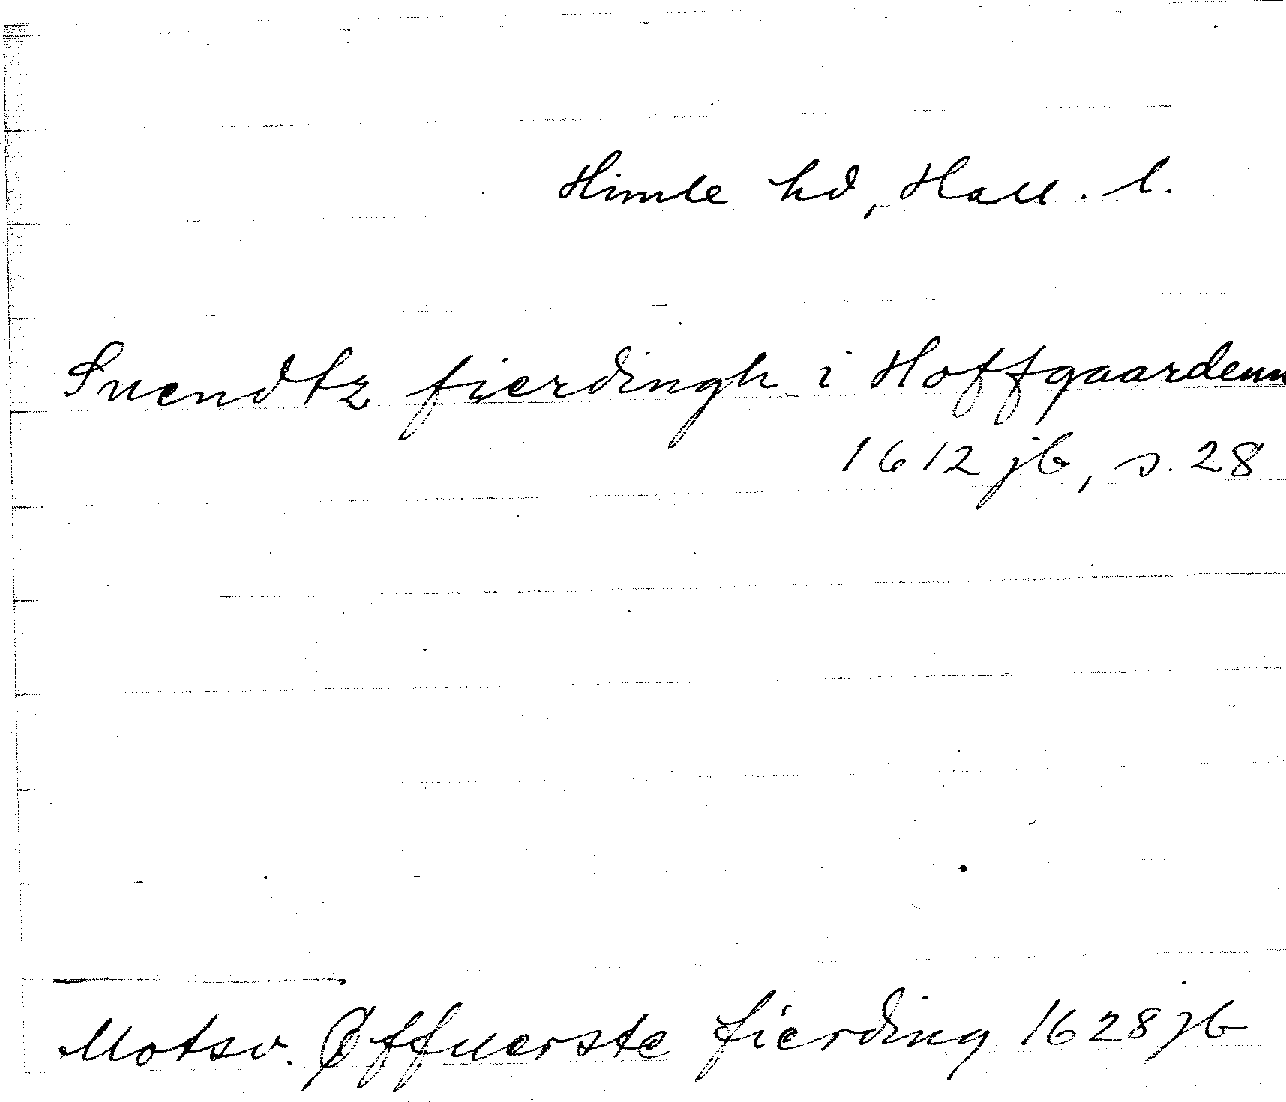 Himle hd, Hall. l.
Suendtz fierdingh i Hoffgaardenn
1612 jb, s. 28
Motsv. Øffuerste fierding 1628 jb